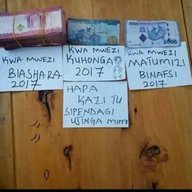 KWA MWEZI
BIASHARA
2017
KWA MWEZI
KUHONGA
2017
KWA MWEZI
MATUMIZI
BINAFSI
2017
HAPA
KAZI TU
SIPENDAGI
UJINGA mim